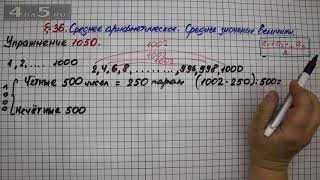 4 ОТ 5.ru
§ 36. Среднее арифметическое. Среднее значение величины.
Упражнение 1050.
1002
1002
1002
1, 2, .... 1000
2, 4, 6, 8, ........, 996, 998, 1000
Чётные 500 чисел = 250 парам (1002 · 250) : 500 =
Нечётные 500